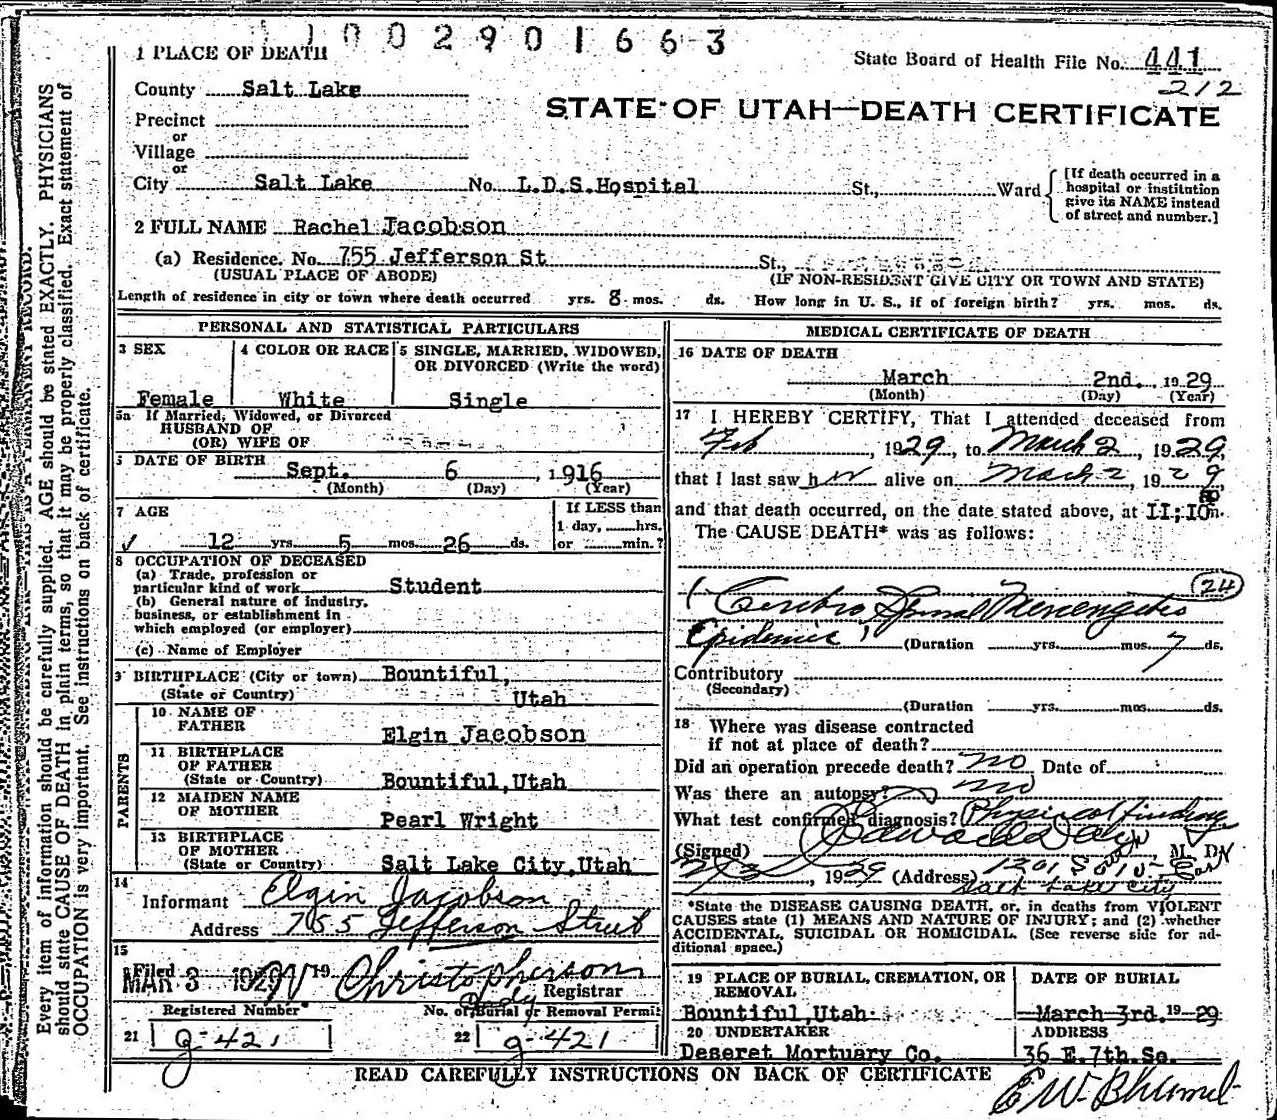 1 0 0 2 9 0 1 6 6 3
1 PLACE OF DEATH
State Board of Health File No. 441
212
County Salt Lake
STATE OF UTAH—DEATH CERTIFICATE
Precinct
or
Village
or
City Salt Lake No. L.D.S.Hospital St., Ward
[If death occurred in a
hospital or institution
give its NAME instead
of street and number.]
2 FULL NAME Rachel Jacobson
(a) Residence. No. 755 Jefferson St St.,
(USUAL PLACE OF ABODE) (IF NON-RESIDENT GIVE CITY OR TOWN AND STATE)
Length of residence in city or town where death occurred yrs. 8 mos. ds. How long in U. S., if of foreign birth? yrs. mos. ds.
PERSONAL AND STATISTICAL PARTICULARS
3 SEX
Female
4 COLOR OR RACE
White
5 SINGLE, MARRIED, WIDOWED,
OR DIVORCED (Write the word)
Single
5a If Married, Widowed, or Divorced
HUSBAND OF
(OR) WIFE OF
DATE OF BIRTH
Sept. 6 , 1916
(Month) (Day) (Year)
7 AGE
12 yrs. 5 mos. 26 ds.
If LESS than
1 day, hrs.
or min.?
8 OCCUPATION OF DECEASED
(a) Trade, profession or
particular kind of work Student
(b) General nature of industry,
business, or establishment in
which employed (or employer)
(c) Name of Employer
9 BIRTHPLACE (City or town) Bountiful,
(State or Country) Utah
PARENTS
10 NAME OF
FATHER Elgin Jacobson
11 BIRTHPLACE
OF FATHER
(State or Country) Bountiful,Utah
12 MAIDEN NAME
OF MOTHER Pearl Wright
13 BIRTHPLACE
OF MOTHER
(State or Country) Salt Lake City,Utah
14
Informant Elgin Jacobson
Address 755 Jefferson Street
15
Filed MAR 3 1929 19 Christopherson
Registrar
Registered Number No. of Burial or Removal Permit
21 g-421 22 g-421
MEDICAL CERTIFICATE OF DEATH
16 DATE OF DEATH
March 2nd. 1929
(Month) (Day) (Year)
17 I HEREBY CERTIFY, That I attended deceased from
Feb , 1929, to March 2, 1929,
that I last saw h er alive on March 2, 1929,
and that death occurred, on the date stated above, at II;IO m.
The CAUSE DEATH* was as follows:
24
Cerebro Spinal Menengitis
Epidemic (Duration yrs. mos. 7 ds.
Contributory
(Secondary)
(Duration yrs. mos. ds.
18 Where was disease contracted
if not at place of death?
Did an operation precede death? no Date of
Was there an autopsy? no
What test confirmed diagnosis? Physical findings
(Signed) M. D.
, 1929 (Address) 1201 South
Salt Lake City
*State the DISEASE CAUSING DEATH, or, in deaths from VIOLENT
CAUSES state (1) MEANS AND NATURE OF INJURY; and (2) whether
ACCIDENTAL, SUICIDAL OR HOMICIDAL. (See reverse side for ad-
ditional space.)
19 PLACE OF BURIAL, CREMATION, OR
REMOVAL
Bountiful,Utah
DATE OF BURIAL
March 3rd. 19 29
20 UNDERTAKER
Deseret Mortuary Co.
ADDRESS
36 E.7th.So.
READ CAREFULLY INSTRUCTIONS ON BACK OF CERTIFICATE
Every item of information should be carefully supplied. AGE should be stated EXACTLY. PHYSICIANS
should state CAUSE OF DEATH in plain terms, so that it may be properly classified. Exact statement of
OCCUPATION is very important. See instructions on back of certificate.